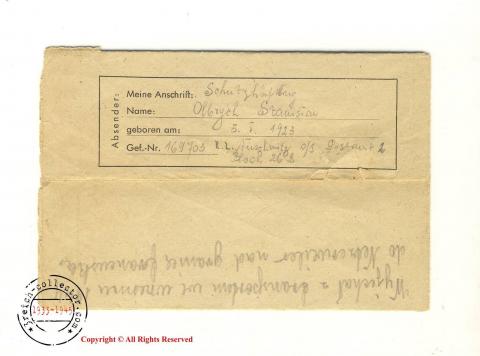 Absender:
Meine Anschrift: Schutzhäftling
Name: Olbrych Stanislau
geboren am: 5. I. 1923
Gef.-Nr. 164703 K.L. Auschwitz O/S Postamt 2
Block 26a
Wyjechał z transportem we wrześniu
do Natzweiler nad granicę francuską
3reich-collector.com
1933-1945
Copyright © All Rights Reserved